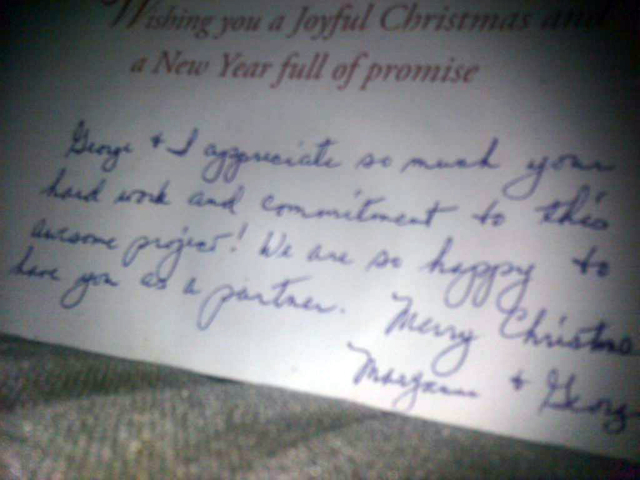 Wishing you a Joyful Christmas and
a New Year full of promise
George + I appreciate so much your
hard work and commitment to this
awesome project! We are so happy to
have you as a partner. Merry Christma
Maryann + Georg